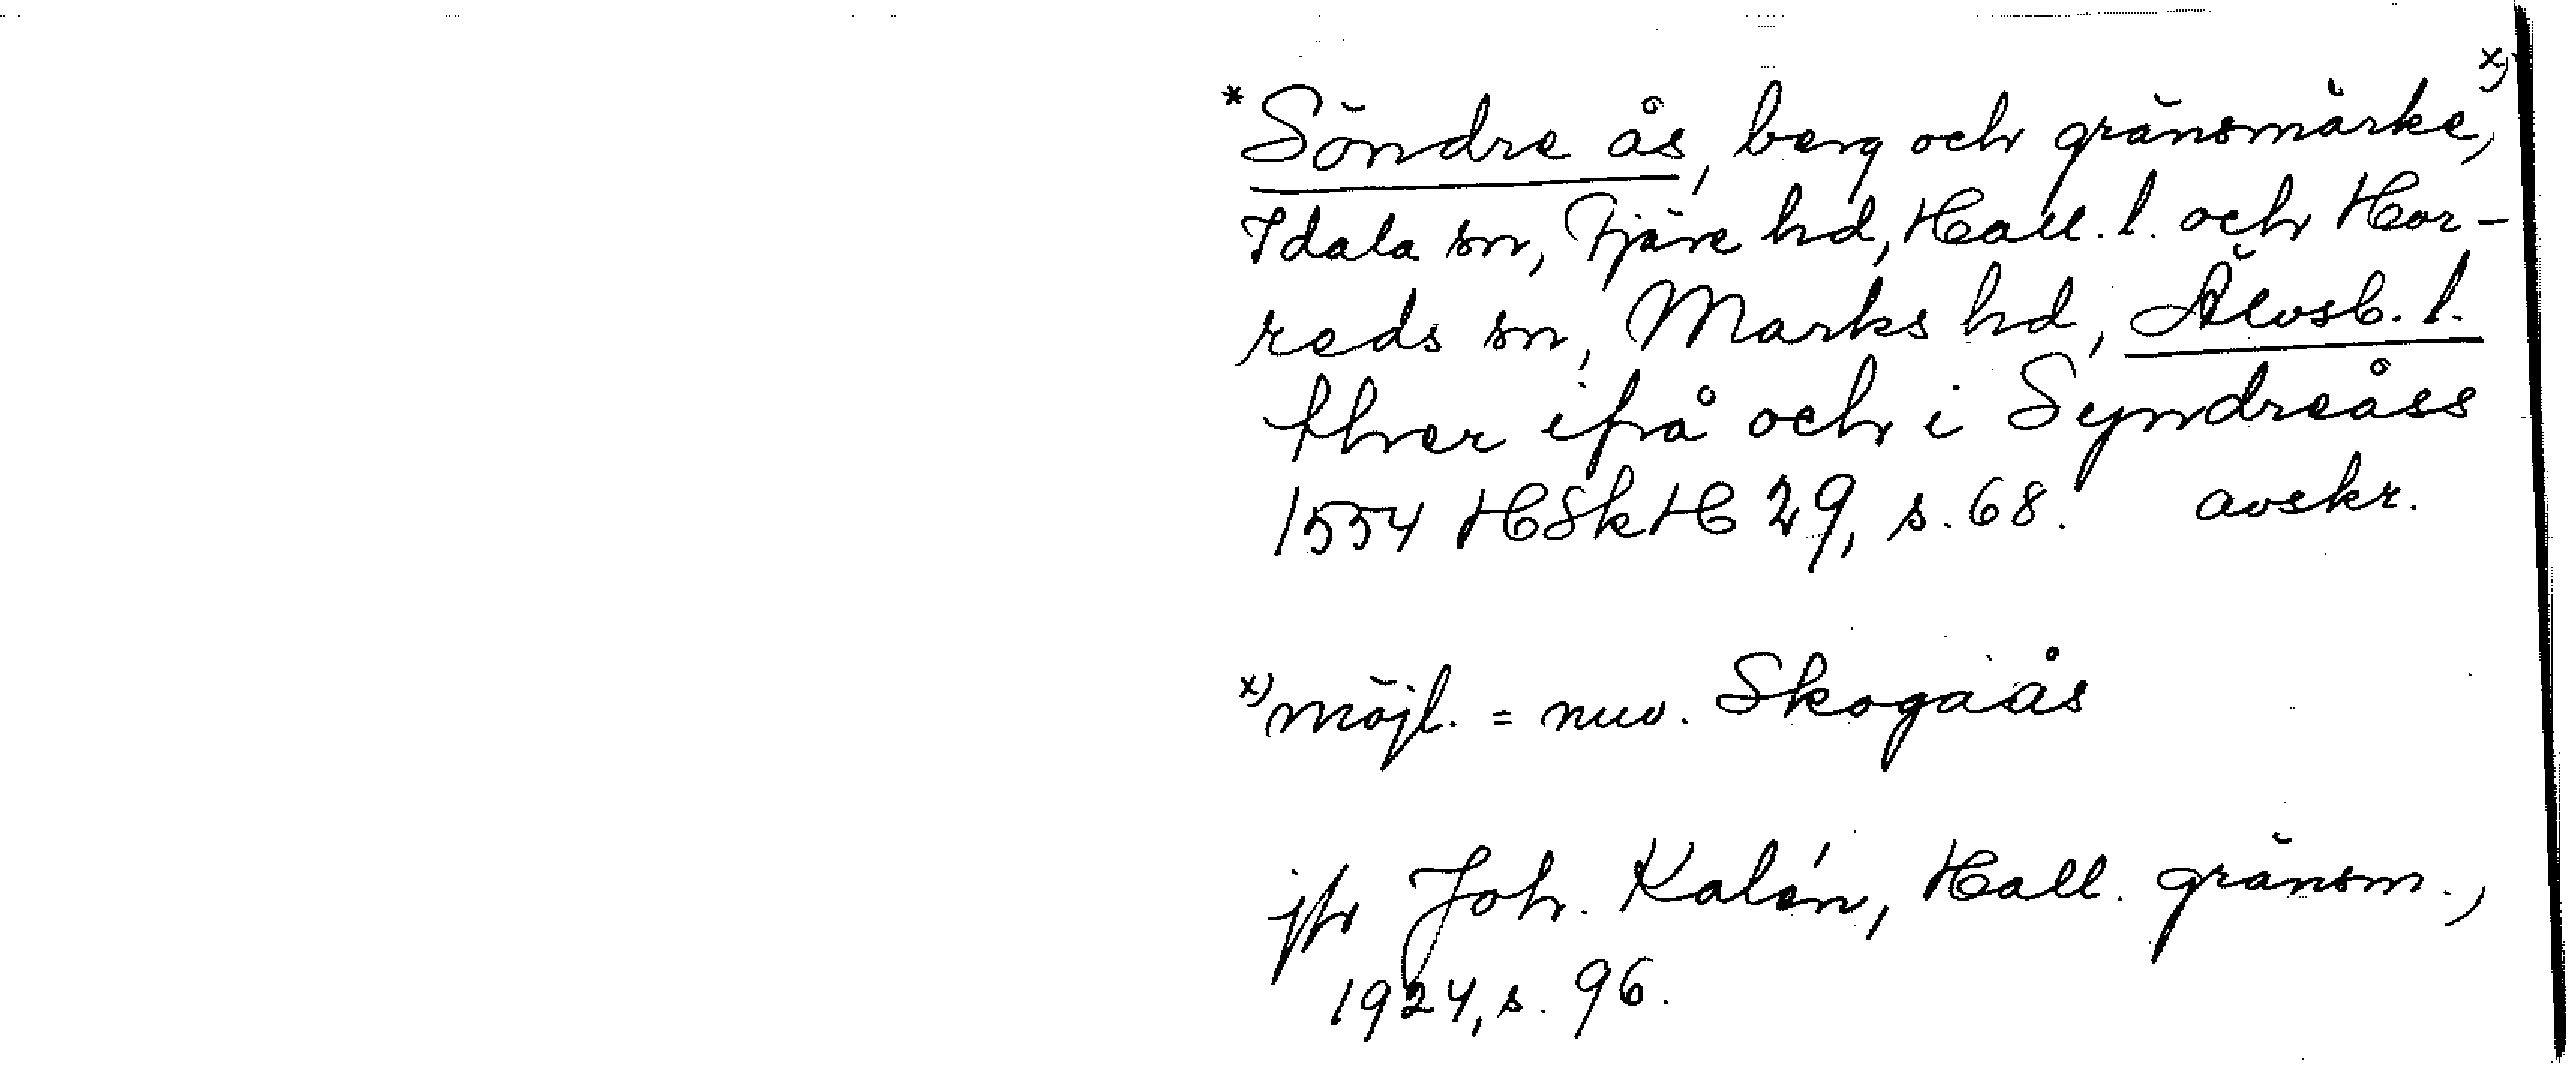 *Söndre ås, berg och gränsmärke, x)
Idala sn, Fjäre hd, Hall. l. och Hor-
reds sn, Marks hd, Älvsb. l.
ther ifrå och i Syndreåss
1554 HSkH 29, s. 68. avskr.
x) möjl. = nuv. Skogaås
jfr Joh. Kalén, Hall. gränsm.,
1924, s. 96.